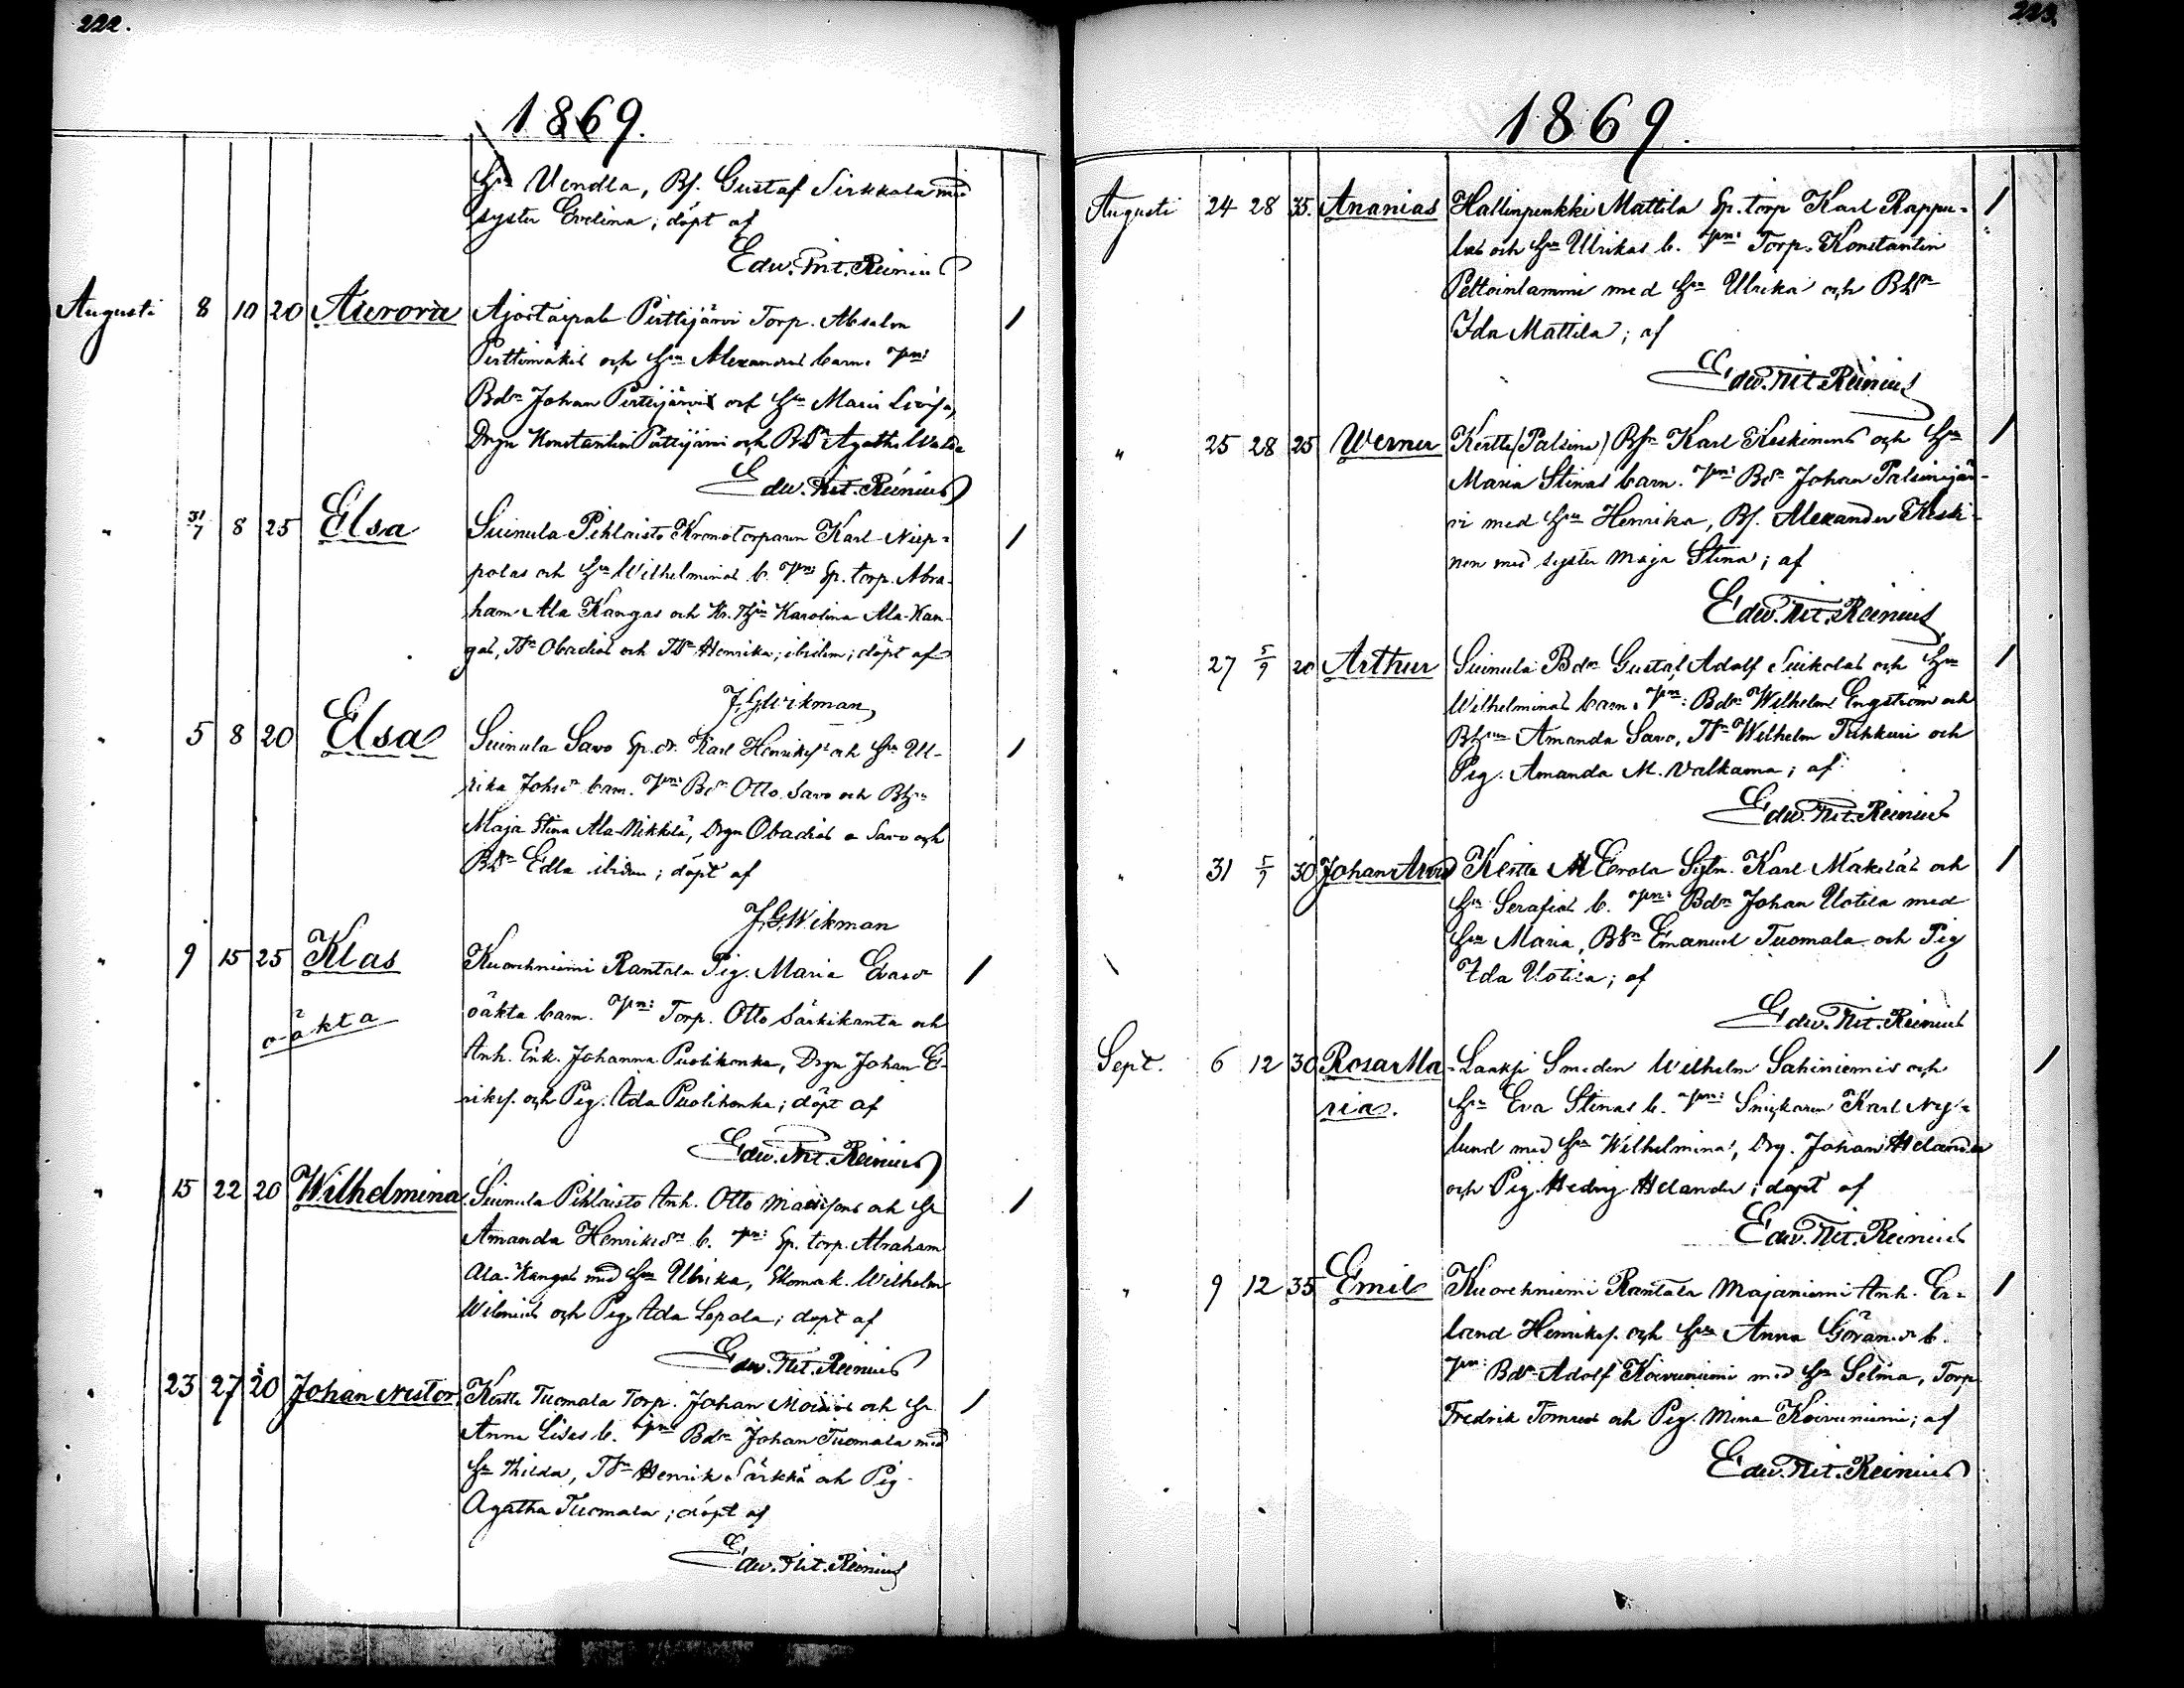 222.
1869.
Hu Vendla, Bs. Gustaf Sirkkala med
syster Evelina; döpt af
Edw. Rit. Reinius
Augusti 8 10 20 Aurora Ajostaipale Pirttijärvi Torp. Absalon
Perttimäkis och Hu Alexandras barn. Vn:
Bdn Johan Pirttijärvi och Hu Maria Lovisa,
Drgn Konstantin Pirttijärvi och Bdr Agatha
Edw. Rit. Reinius
" 31/7 8 25 Elsa Suinula Pihlaisto Kronotorparen Karl Niep-
polas och Hu Wilhelminas b. Vn: Sp. torp. Abra-
ham Ala Kangas och Karolina Ala-Kan-
gas, Obadias och Henrika, ibidem; döpt af
J. G. Wikman
" 5 8 20 Elsa Suinula Savo Sp. dr. Karl Henriksss och Hu Ul-
rika Johsdr barn. Vn: Bdn Otto Savo och
Maja Stina Ala-Nikkilä, Drgn Obadias Savo och
Bdr Edla ibidem; döpt af
J. G. Wikman
" 9 15 25 Klas Kuorehniemi Rantala Pig. Maria Evasdr
oäkta
oäkta barn. Vn: Torp. Otto Särkikanta och
Anh. Enk. Johanna Puolikonka, Drgn Johan E-
rikss. och Pig. Ida Puolihonka; döpt af
Edw. Rit. Reinius
" 15 22 20 Wilhelmina Suinula Pihlaisto Anh. Otto och Hu
Amanda Henriksdrs b. Vn: Sp. torp. Abraham
Ala-Kangas med Hu Ulrika, Skomak. Wilhelm
Wilenius och Pig. Ida Lepola; döpt af
Edw. Rit. Reinius
" 23 27 20 Johan Nestor Kertte Tuomala Torp. Johan Moisios och Hu
Anna Lisas b. Vn: Bdn Johan Tuomala med
Hu Hilda, Henrik Särkkä och Pig.
Agatha Tuomala; döpt af
Edw. Rit. Reinius
223.
1869.
Augusti 24 28 35. Ananias Hallinpenkki Mattila Sp. torp Karl Rappu-
las och Hu Ulrikas b. Vn: Torp. Konstantin
Peltoinlammi med Hu Ulrika och Bdr
Ida Mattila; af
Edw. Rit. Reinius
" 25 28 25 Werner Kertte (Palsina) Bsn Karl Keskinens och Hu
Maria Stinas barn. Vn: Bdn Johan Palsinajär-
vi med Hu Henrika, Bs. Alexander Keski-
nen med syster Maja Stina; af
Edw. Rit. Reinius
" 27 5/9 20 Arthur Suinula Bdn Gustaf Adolf Suikolas och Hu
Wilhelminas barn. Vn: Bdn Wilhelm Engström och
Amanda Savo, Wilhelm Tuhkuri och
Pig. Amanda M. Valkama; af
Edw. Rit. Reinius
" 31 5/9 30 Johan Arvid Kertte Eerola Sytn. Karl Mäkeläs och
Hu Serafias b. Vn: Bdn Johan Uotila med
Hu Maria, Bsn Emanuel Tuomala och Pig
Ida Uotila; af
Edw. Rit. Reinius
Sept. 6 12 30 Rosa Ma- Laakso Smeden Wilhelm Sahiniemis och
ria. Hu Eva Stinas b. Vn: Snickaren Karl Ny-
lund med Hu Wilhelmina, Drg. Johan Helander
och Pig. Hedvig Helander; döpt af
Edw. Rit. Reinius
" 9 12 35 Emil Kuorehniemi Rantala Majaniemi Anh. Er-
land Henrikss. och Hu Anna Görans dr b.
Vn: Bdn Adolf Koivuniemi med Hu Selma, Torp
Fredrik Tomros och Pig. Mina Koivuniemi; af
Edw. Rit. Reinius